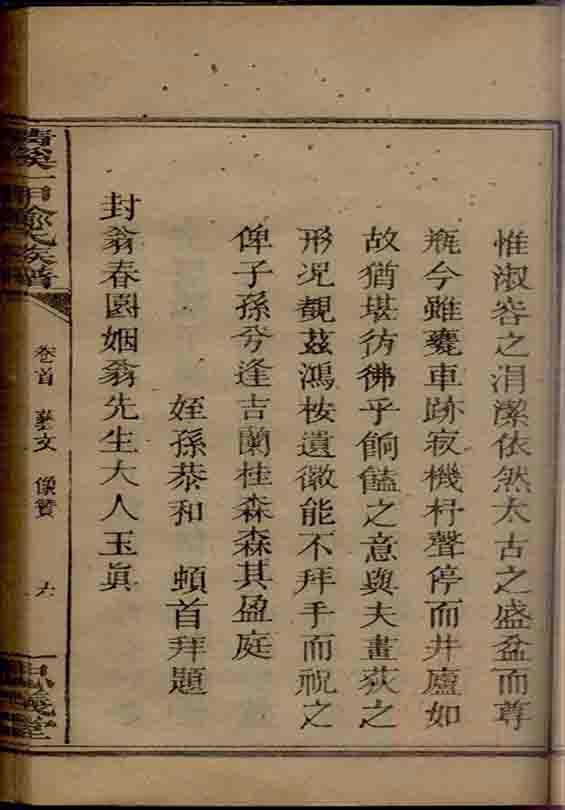 惟淑容之涓潔依然太古之盛盆而尊
瓶今雖麂車跡寂機杼聲停而井廬如
故猶堪彷彿乎餉饁之意與夫畫荻之
形况覩茲鴻桉遺徽能不拜手而祝之
俾子孫兮逢吉蘭桂森森其盈庭
姪孫恭和 頓首拜題
封翁春園姻翁先生大人玉眞
族譜
卷首 藝文 像贊 六